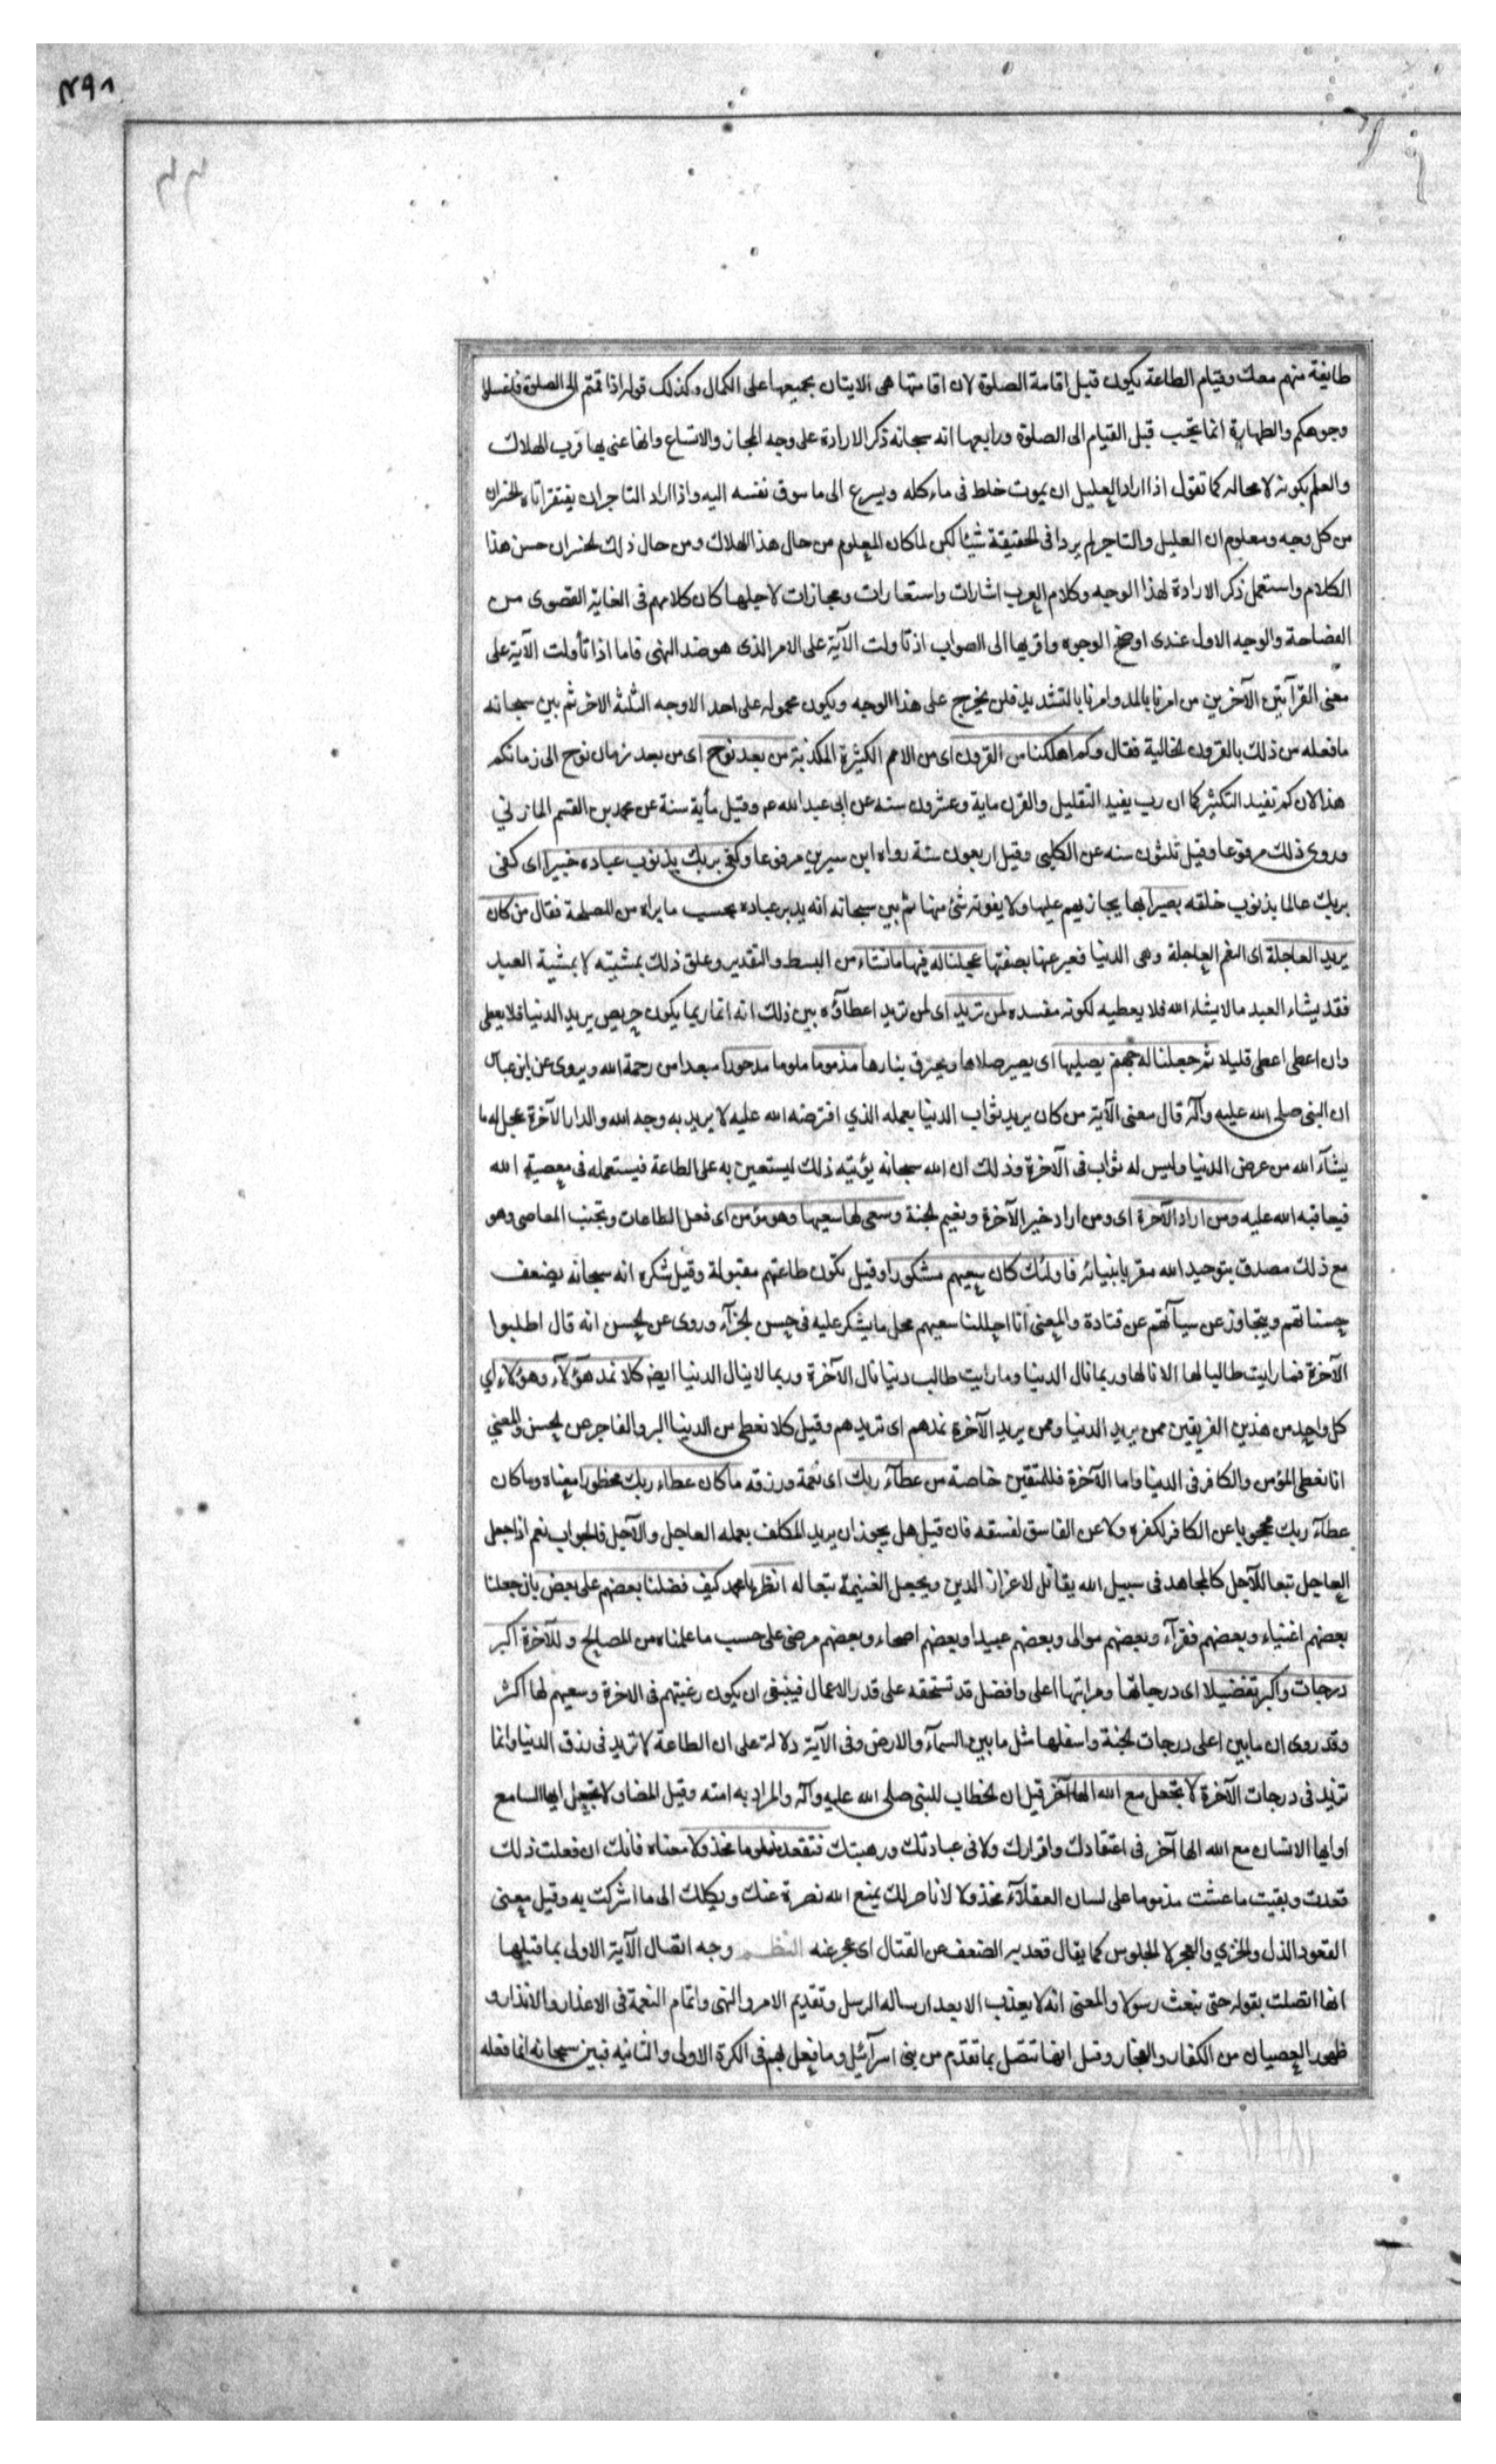 ٤٩٨
طايفة منهم معك وقيام الطاعة يكون قبل اقامة الصلوة لان اقامتها هى الايتان بجميعها على الكمال وكذلك قوله اذا قمتم الى الصلوة فاغسلوا
وجوهكم والطهارة انما يجب قبل القيام الى الصلوة ورابعها انه سبحانه ذكر الارادة على وجه المجاز والاتساع وانما عنى بها قرب الهلاك
والعلم بكونه لا محاله كما تقول اذا اراد العليل ان يموت خلط فى ماءكله ويسرع الى ما سوق نفسه اليه واذا اراد التاجر ان يفتقر اتاه الخسران
من كل وجه ومعلوم ان العليل والتاجر لم يردا فى الحقيقة شيئا لكن لما كان المعلوم من حال هذا الهلاك ومن حال ذلك الخسران حسن هذا
الكلام واستعمل ذكر الارادة لهذا الوجه وكلام العرب اشارات واستعارات ومجازات لاجلها كان كلامهم فى الغاية القصوى من
الفصاحة والوجه الاول عندى اوضح الوجوه واقربها الى الصواب اذ تاولت الآية على الامر الذى هو ضد النهى فاما اذا تأولت الآية على
معنى القرآيتين الآخرين من امرنا بالمد وامرنا بالتشديد فلن يخرج على هذا الوجه ويكون محموله على احد الاوجه الثلثة الاخر ثم بين سبحانه
ما فعله من ذلك بالقرون الخالية فقال وكم اهلكنا من القرون اى من الامم الكثيرة المكذبة من بعد نوح اى من بعد زمان نوح الى زمانكم
هذا لان كم تفيد التكثير كما ان رب يفيد التقليل والقرن ماية وعشرون سنه عن ابى عبد الله عم وقيل مأية سنة عن محمد بن القسم المازني
وروى ذلك مرفوعا وقيل ثلثون سنه عن الكلبى وقيل اربعون سنة رواه ابن سيرين مرفوعا وكفى بربك بذنوب عباده خبيرا اى كفى
بربك عالما بذنوب خلقه بصيرا بها يجازيهم عليها ولا يفوته شئ منها ثم بين سبحانه انه يدبر عباده بحسب ما يراه من المصلحة فقال من كان
يريد العاجلة اى النعم العاجلة وهى الدنيا فعبر عنها بصفتها عجلنا له فيها ما نشاء من البسط والتقدير وعلق ذلك بمشيته لا بمشية العبد
فقد يشاء العبد ما لا يشاء الله فلا يعطيه لكونه مفسده لمن نريد اى لمن نريد اعطاؤه بين ذلك انه انما ربما يكون حريص يريد الدنيا فلا يعطى
وان اعطى اعطى قليلا ثم جعلنا له جهنم يصليها اى يصير صلاها ويحترق بنارها مذموما ملوما مدحورا مبعدا من رحمة الله ويروى عن ابن عباس
ان النبى صلى الله عليه وآله قال معنى الآية من كان يريد ثواب الدنيا بعمله الذي افترضه الله عليه لا يريد به وجه الله والدار الآخرة عجل له ما
يشآء الله من عرض الدنيا وليس له ثواب فى الآخرة وذلك ان الله سبحانه يؤتيه ذلك ليستعين به على الطاعة فيستعمله فى معصية الله
فيعاقبه الله عليه ومن اراد الآخرة اى ومن اراد خير الآخرة ونعيم الجنة وسعى لها سعيها وهو مؤمن اى فعل الطاعات وتجنب المعاصى وهو
مع ذلك مصدق بتوحيد الله مقر بانبيائه فاولئك كان سعيهم مشكورا وقيل تكون طاعتهم مقبولة وقيل شكره انه سبحانه يضعف
حسناتهم ويتجاوز عن سيآتهم عن قتادة والمعنى انا احللنا سعيهم محل ما يشكر عليه فى حسن الجزآء وروى عن الحسن انه قال اطلبوا
الآخرة فما رايت طالبا لها الا نالها وربما نال الدنيا وما رايت طالب دنيا نال الآخرة وربما لا ينال الدنيا ايضا كلا نمد هؤلآء وهؤلاء اي
كل واحد من هذين الفريقين ممن يريد الدنيا وممن يريد الآخرة نمدهم اى نريدهم وقيل كلا نعطى من الدنيا البر والفاجر عن الحسن والمعني
انا نعطى المؤمن والكافر فى الدنيا واما الآخرة فللمتقين خاصة من عطآء ربك اى نعمة ورزقه ما كان عطاء ربك محظورا معناه وما كان
عطآء ربك محجوبا عن الكافر لكفره ولا عن الفاسق لفسقه فان قيل هل يجوز ان يريد المكلف بعمله العاجل والآجل فالجواب نعم اذا جعل
العاجل تبعا للآجل كالمجاهد فى سبيل الله يقاتل لاعزاز الدين ويجعل الغنيمة تبعا له انظر يا محمد كيف فضلنا بعضهم على بعض بان جعلنا
بعضهم اغنياء وبعضهم فقرآء وبعضهم موالى وبعضهم عبيدا وبعضهم اصحاء وبعضهم مرضى على حسب ما علمناه من المصالح وللآخرة اكبر
درجات واكبر تفضيلا اى درجاتها ومراتبها اعلى وافضل قد تستحقه على قدر الاعمال فينبغى ان يكون رغبتهم فى الاخرة وسعيهم لها اكثر
وقد روى ان ما بين اعلى درجات الجنة واسفلها مثل ما بين السمآء والارض وفى الآية دلالة على ان الطاعة لا تزيد فى رزق الدنيا وانما
تزيد فى درجات الآخرة لا تجعل مع الله الها آخر قيل ان الخطاب للنبى صلى الله عليه وآله والمراد به امته وقيل المضاو لا تجعل ايها السامع
او ايها الانسان مع الله الها آخر فى اعتقادك واقرارك ولا فى عبادتك ورهبتك فتقعد ملوما مخذولا معناه فانك ان فعلت ذلك
قعدت وبقيت ما عشت مذموما على لسان العقلآء مخذولا لا ناصر لك يمنع الله نصرة عنك ويكلك الى ما اشركت به وقيل معنى
القعود الذل والخزي والعجز لا الجلوس كما يقال قعد به الضعف عن القتال اى عجز عنه النظم وجه اتصال الآية الاولى بما قبلها
انها اتصلت بقوله حتى نبعث رسولا والمعنى انه لا يعذب الا بعد ارساله الرسل وتقديم الامر والنهى واتمام النعمة فى الاعذار والانذار و
ظهور العصيان من الكفار والفجار وقيل انها تتصل بما تقدم من بنى اسرآئيل وما فعل بهم فى الكرة الاولى والثانيه فبين سبحانه انما فعله